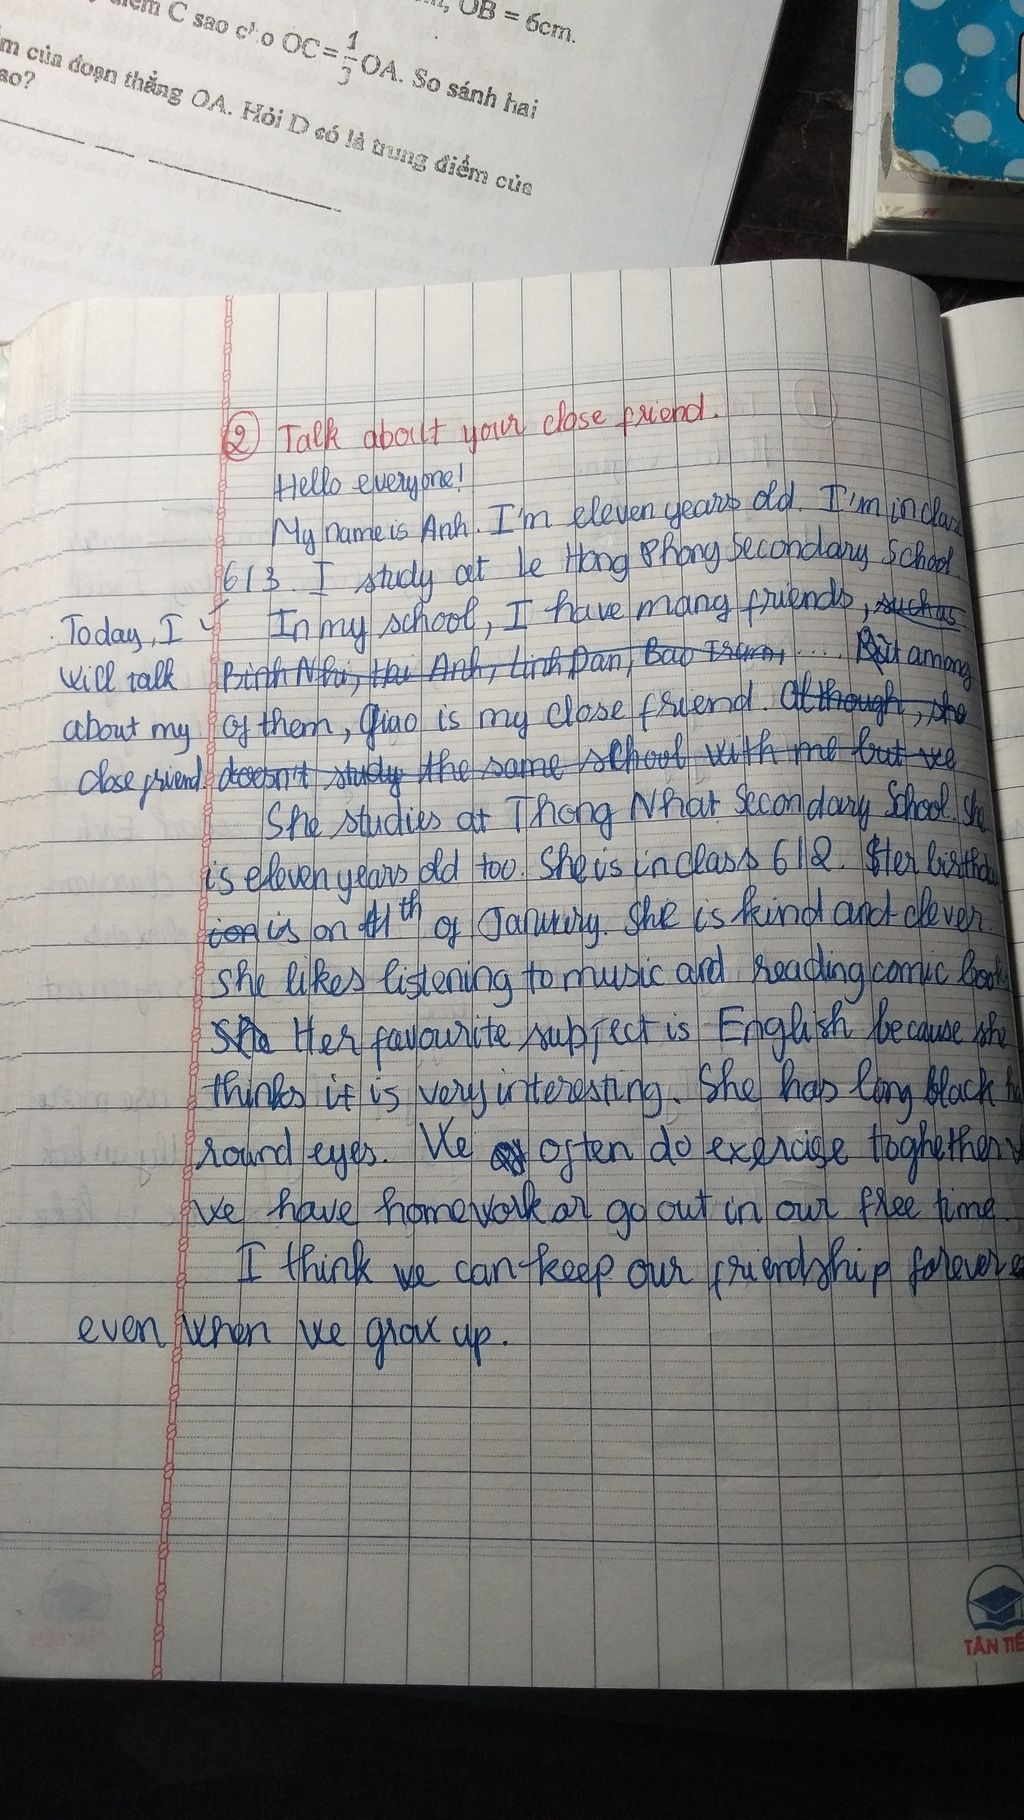 OB = 6cm.
C sao cho OC = 1/3 OA. So sánh hai
của đoạn thẳng OA. Hỏi D có là trung điểm của
sao?
② Talk about your close friend.
Hello everyone!
My name is Anh. I'm eleven years old. I'm in class
6/3. I study at Le Hong Phong Secondary School.
Today, I
will talk
about my
close friend
In my school, I have many friends, such as
Binh Nhi, Thi Anh, Linh Dan, Bao Tram, .... But among
of them, Giao is my close friend. Although, she
doesn't study the same school with me but we
She studies at Thong Nhat Secondary School. She
is eleven years old too. She is in class 6/2. Her birthday
is on 11th of January. She is kind and clever
She likes listening to music and reading comic book
She Her favourite subject is English because she
thinks it is very interesting. She has long black
round eyes. We often do exercise toghether
we have homework or go out in our free time.
I think we can keep our friendship forever
even when we grow up.
TÂN TIẾ